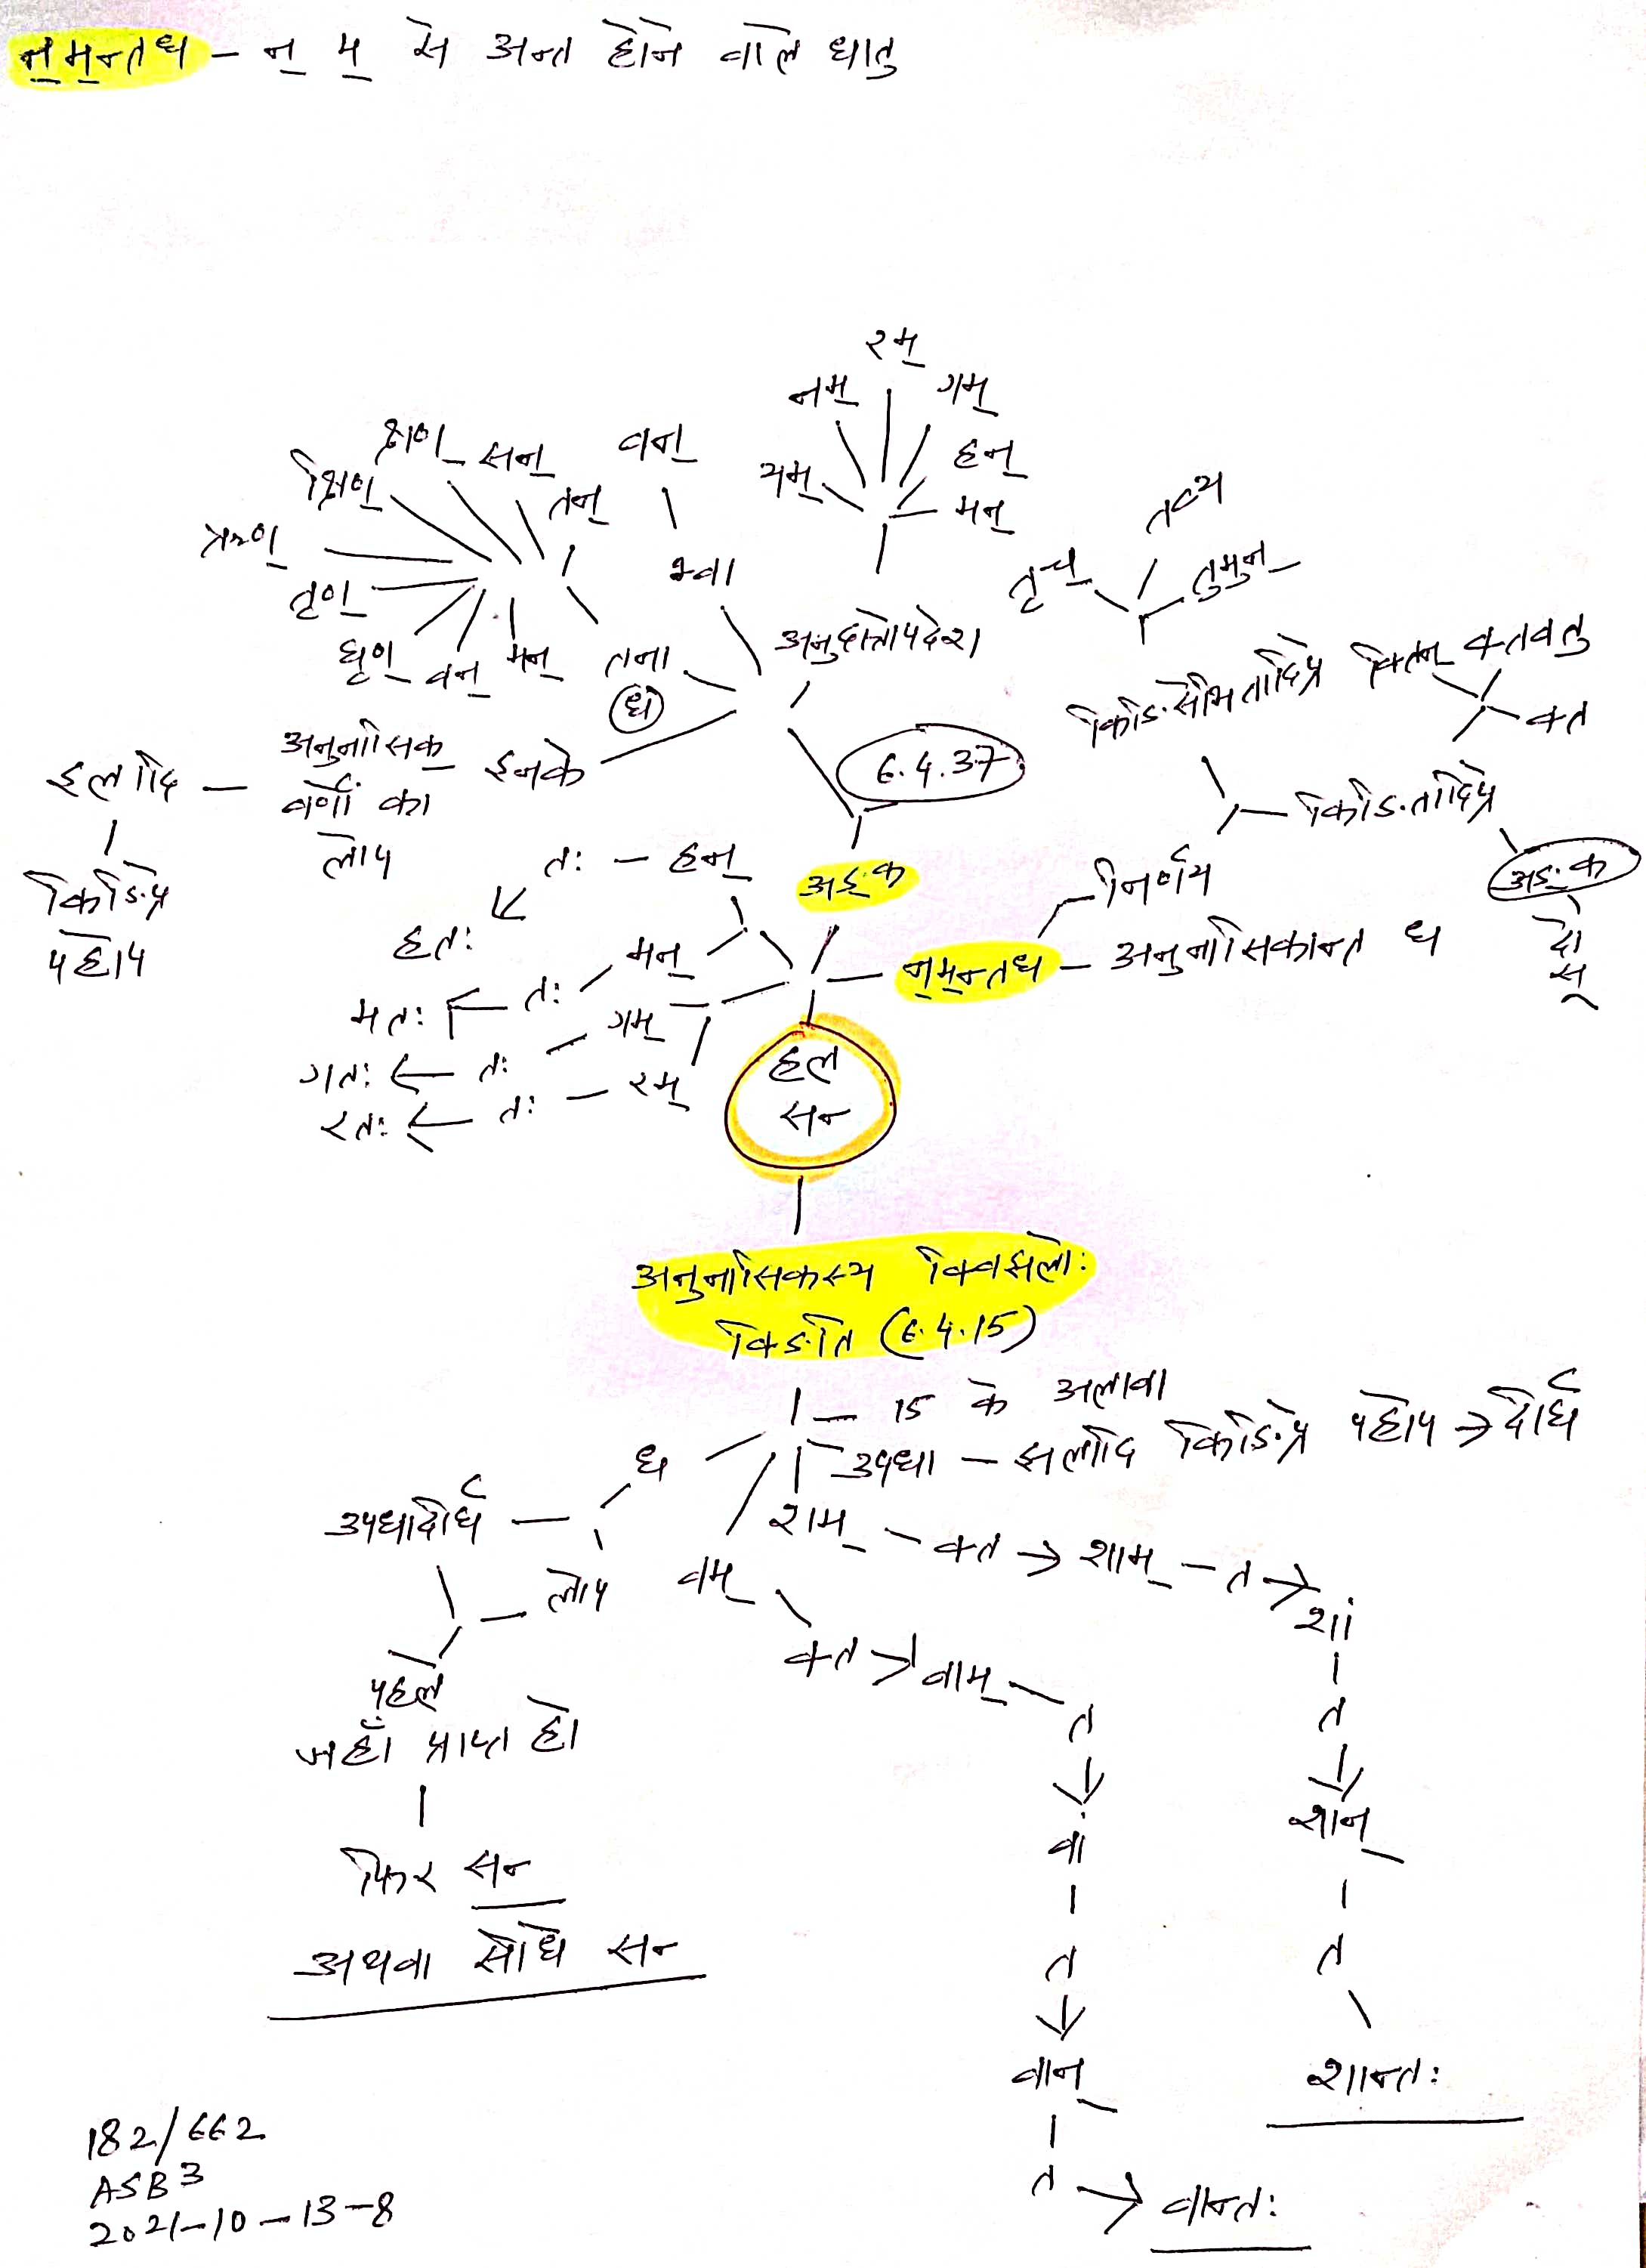 न्मन्तध - न् म् से अन्त होने वाले धातु
रम्
नम् गम्
यम् हन्
मन्
क्षिण् क्षण् सन् वन्
तन्
ऋण्
तृण्
घृण् वन् मन् तना भ्वा
ध
अनुदात्तोपदेश
तव्य
तृच् तुमुन्
किङित्सेभि तादिप्र क्तिन् क्तवतु
क्त
6.4.37
हलादि - अनुनासिक इनके
वर्णों का
लोप
किङित्प्र
पहोप
तः - हन्
हतः
अङ्क
निर्णय
किङित्तादिप्र
अङ्क
दो
सू
न्मन्तध - अनुनासिकान्त ध
मतः ← तः - मन्
गतः ← तः - गम्
रतः ← तः - रम्
हल
सन्
अनुनासिकस्य क्विझलोः
क्ङिति (6.4.15)
15 के अलावा
उपधा - झलादि किङित्प्र पहोप → दीर्घ
ध
उपधादीर्घ
लोप
शम् - क्त → शाम् - त → शां
वम् क्त → वाम् - त
पहले
जहाँ प्राप्त हो
फिर सन्
अथवा सीधे सन्
त
वां शान्
त त
वान् शान्तः
त → वान्तः
182/662
ASB3
2021-10-13-8